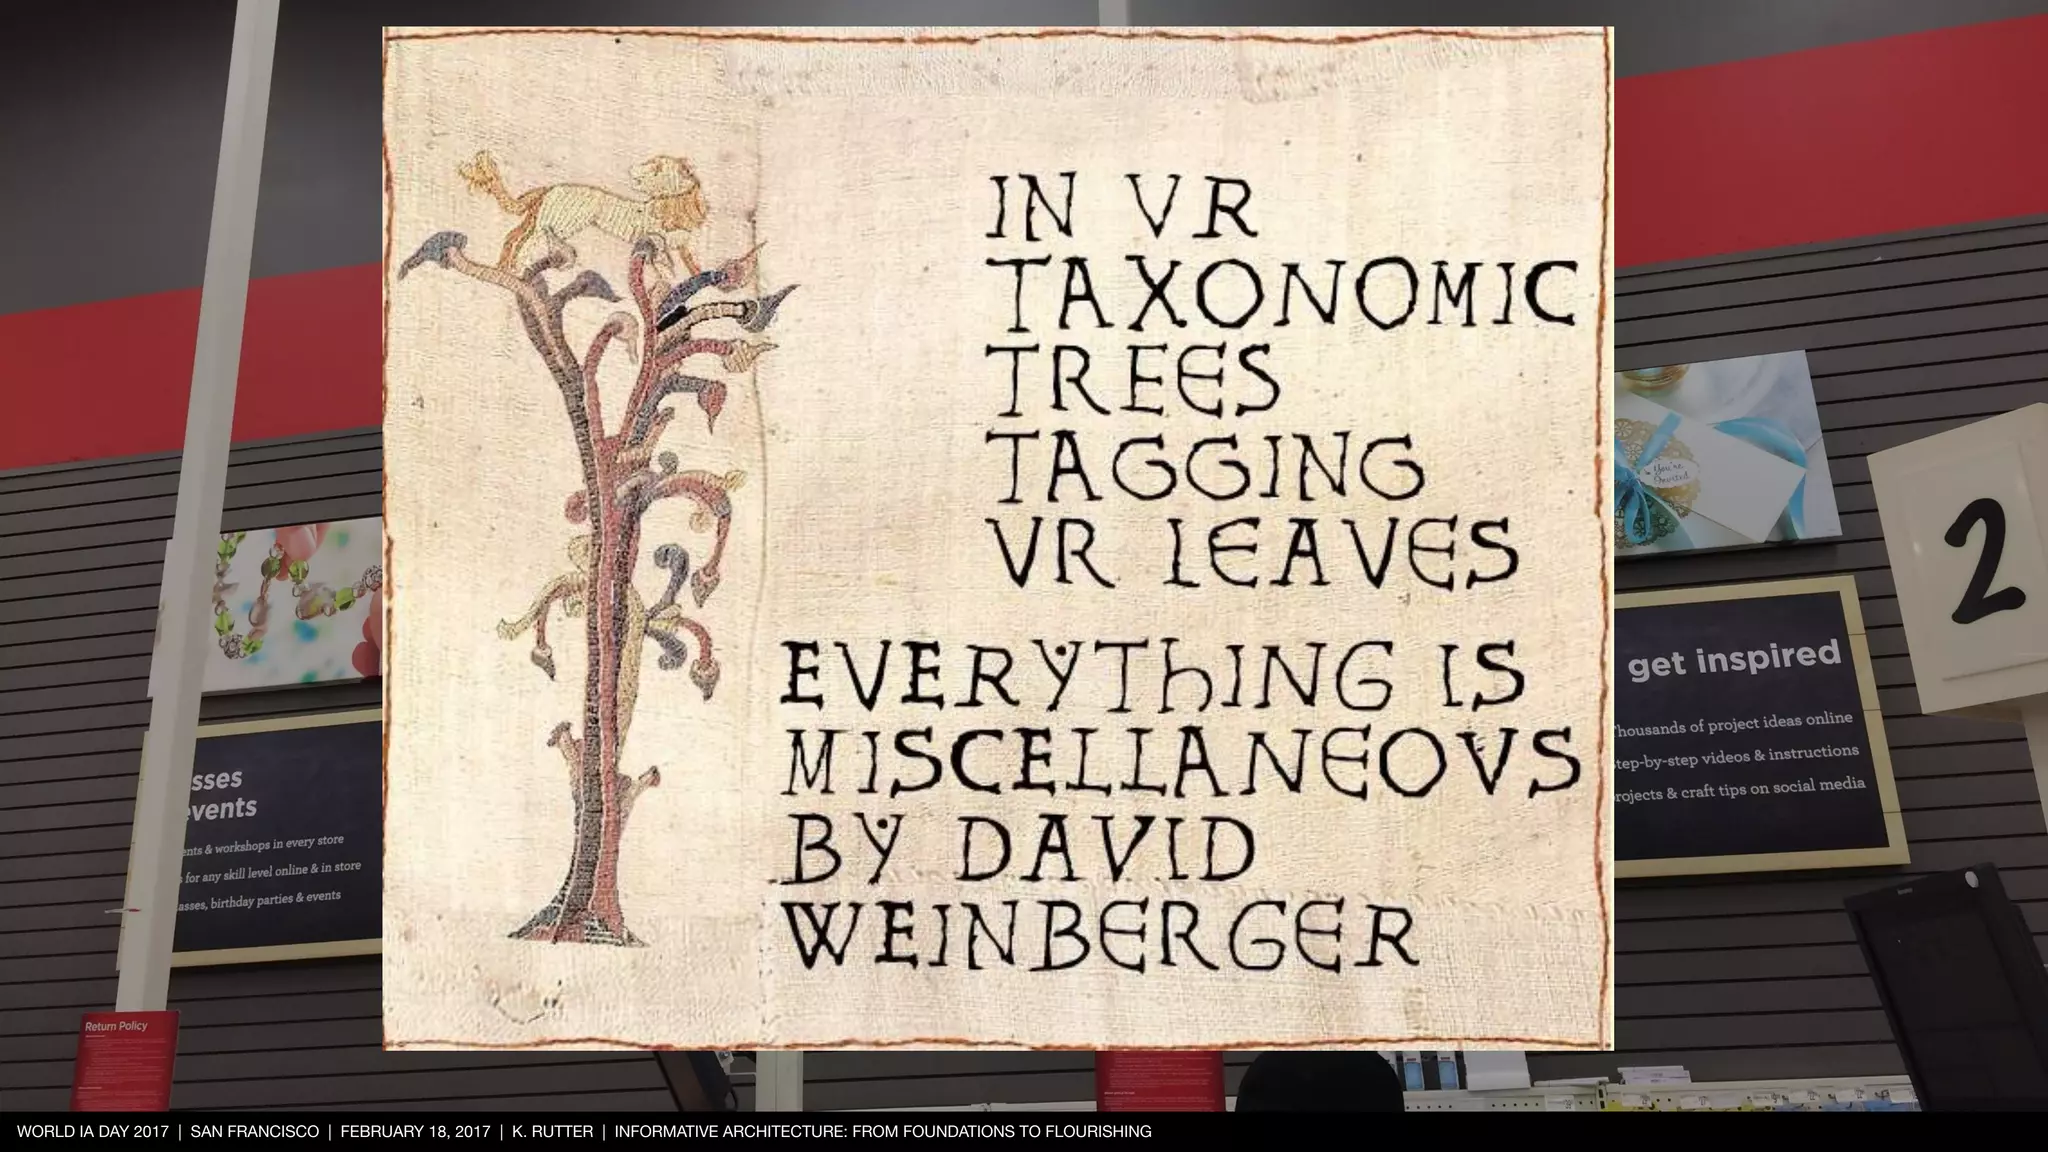 IN VR
TAXONOMIC
TREES
TAGGING
VR LEAVES
EVERYThING IS
MISCELLANEOVS
BY DAVID
WEINBERGER
You're
Invited
2
get inspired
Thousands of project ideas online
step-by-step videos & instructions
projects & craft tips on social media
sses
events
ents & workshops in every store
for any skill level online & in store
asses, birthday parties & events
Return Policy
WORLD IA DAY 2017 | SAN FRANCISCO | FEBRUARY 18, 2017 | K. RUTTER | INFORMATIVE ARCHITECTURE: FROM FOUNDATIONS TO FLOURISHING